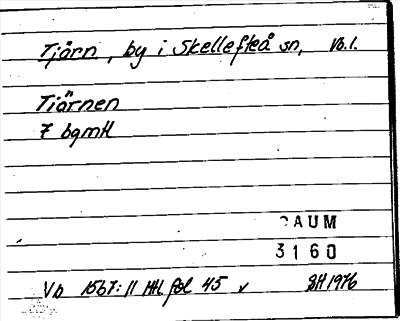 Tjärn, by i Skellefteå sn, Vb.l.
Tiärnen
7 bgmtl
DAUM
3160
Vb 1567:11 Htl fol 45 v GH 1976